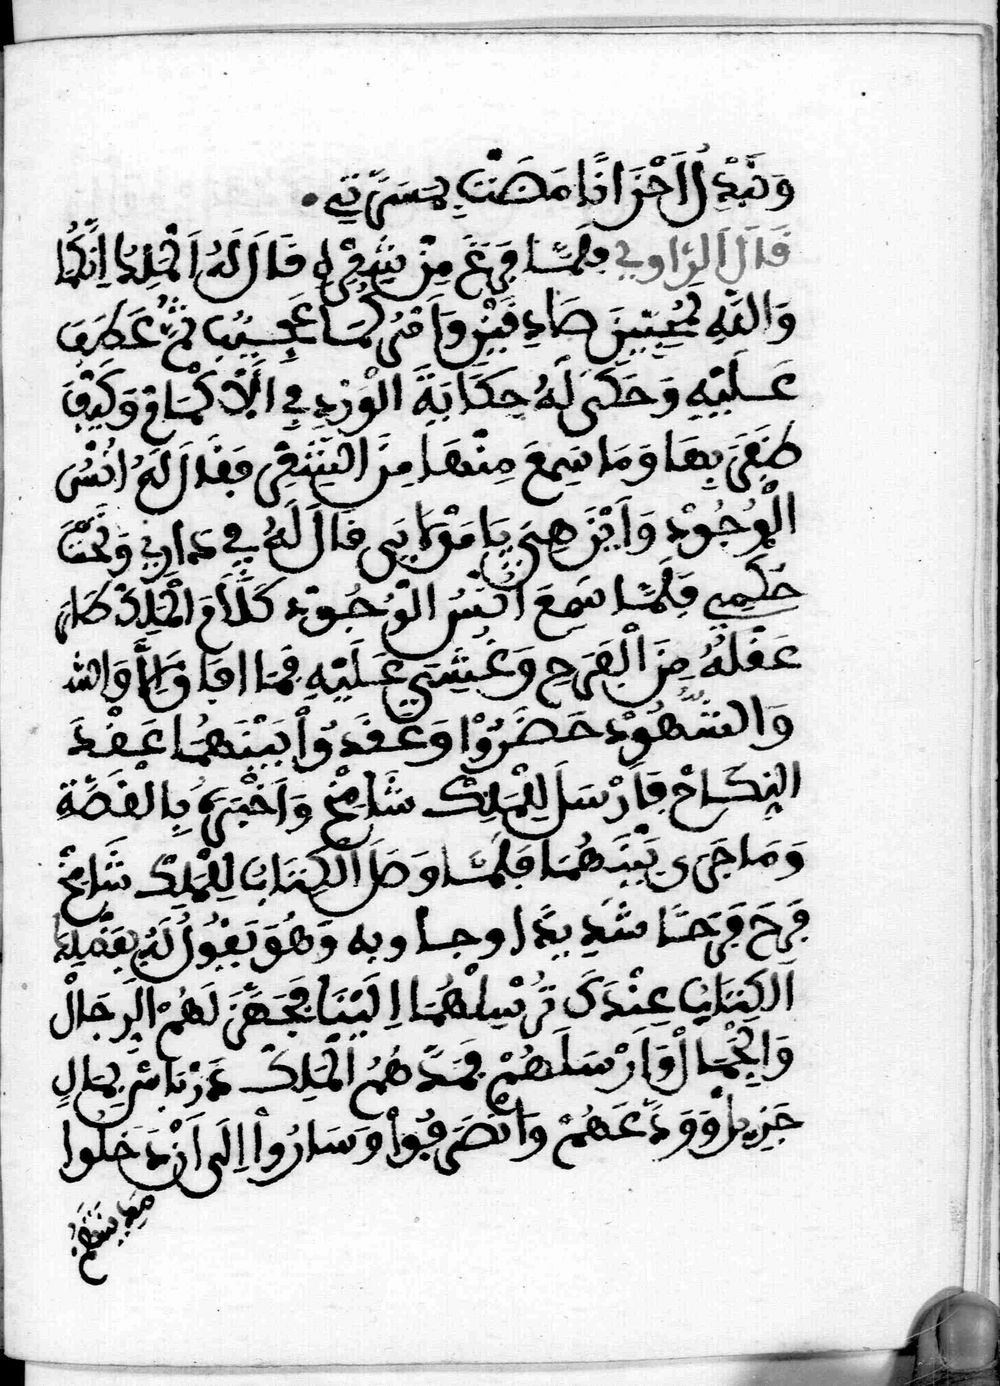 وَنُبَدِّلُ أَحْزَانًا مَضَتْ بِمَسَرَّتِي
قَالَ الرَّاوِي فَلَمَّا فَرَغَ مِنْ شِعْرِهِ قَالَ لَهُ الْمَلِكُ اِنَّكُمَا
وَاللهِ مُحِبِّينَ صَادِقَيْنِ وَأَمْرُكُمَا عَجِيبٌ ثُمَّ عَطَفَ
عَلَيْهِ وَحَكَى لَهُ حِكَايَةَ الْوَرْدِ فِي الْأَكْمَامْ وَكَيْفَ
ظَفَرَ بِهَا وَمَا سَمِعَ مِنْهَا مِنَ الشِّعْرِ فَقَالَ لَهُ اُنْسُ
الْوُجُودْ وَأَيْنَ هِيَ يَا مَوْلَايَ قَالَ لَهُ فِي دَارِي وَتَحْتَ
حُكْمِي فَلَمَّا سَمِعَ اُنْسُ الْوُجُودْ كَلَامَ الْمَلِكْ طَارَ
عَقْلُهُ مِنَ الْفَرَحِ وَغُشِيَ عَلَيْهِ فَمَا افَاقَ إِلَّا وَالله
وَالشُّهُودْ حَضَرُوا وَعَقَدُوا بَيْنَهُمَا عَقْدَ
النِّكَاحْ فَأَرْسَلَ لِلْمَلِكْ شَامِخْ وَأَخْبَرَهُ بِالْقِصَّةِ
وَمَا جَرَى بَيْنَهُمَا فَلَمَّا وَصَلَ الْكِتَابُ لِلْمَلِكْ شَامِخْ
فَرَحَ فَرَحًا شَدِيدًا وجاوبه وَهُوَ يَقُولُ لَهُ
الْكِتَابُ عِنْدَكَ تُرْسِلْهُمَا اِلَيْنَا فَجَهَّزَ لَهُمُ الرِّجَالْ
وَالْجِمَالْ وَأَرْسَلَهُمْ فَمَدَّهُمُ الْمَلِكْ دَرْبَاسْ بِمَالٍ
جَزِيلْ وَوَدَّعَهُمْ وَانْصَرَفُوا وَسَارُوا اِلَى اَنْ دَخَلُوا